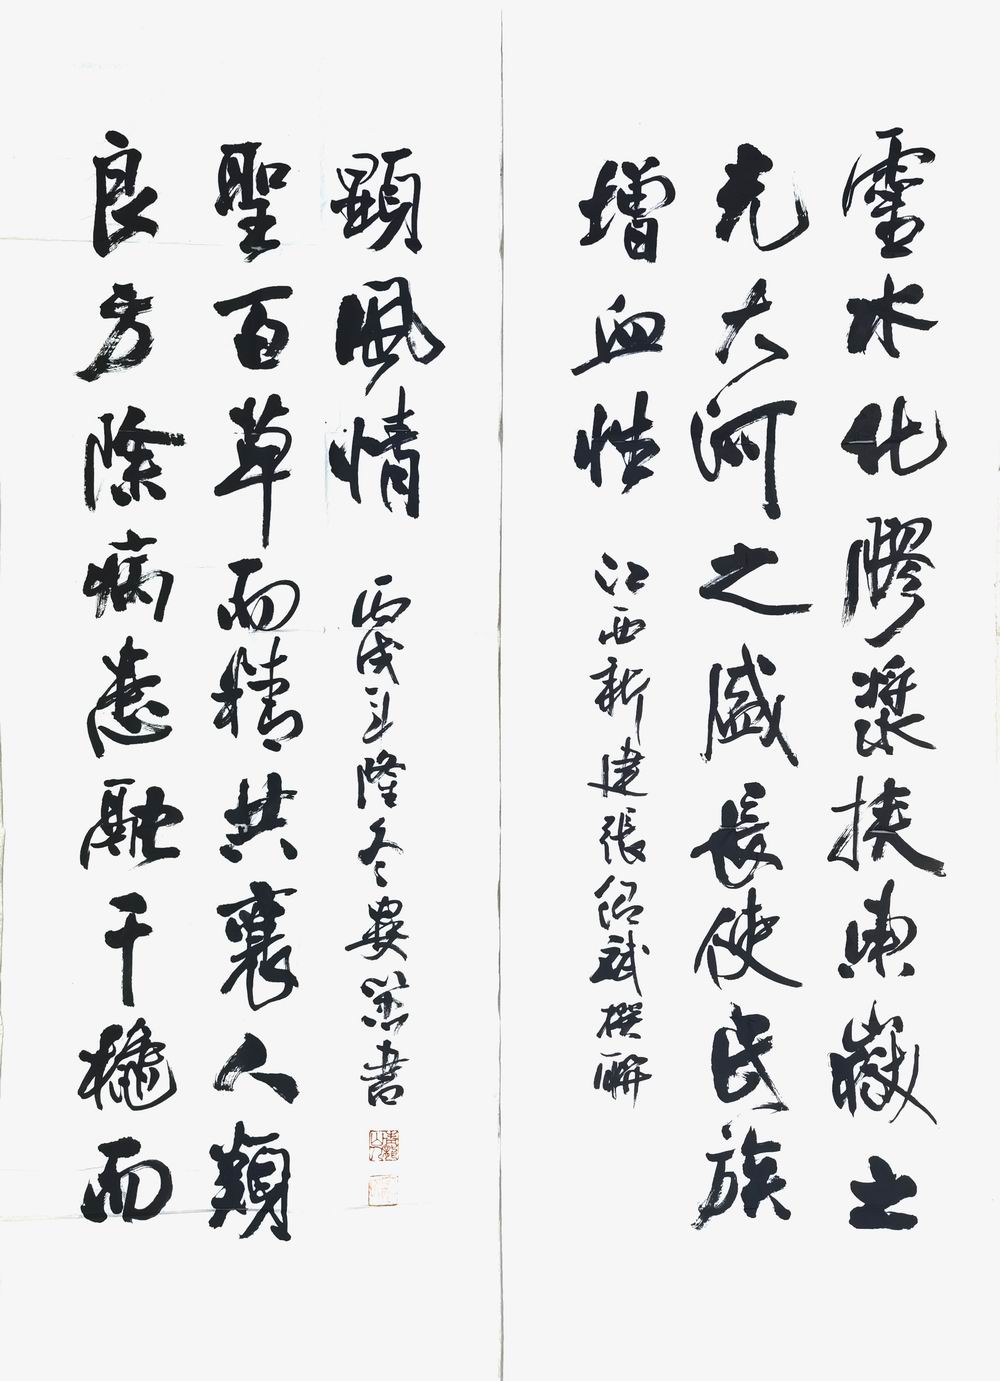 靈水化膠漿挾東嶽之
充大河之盛長使民族
增血性
江西新建張紹斌撰聯
良方除病患融千穐而
聖百草而精共襄人類
顯風情
丙戌年隆冬書